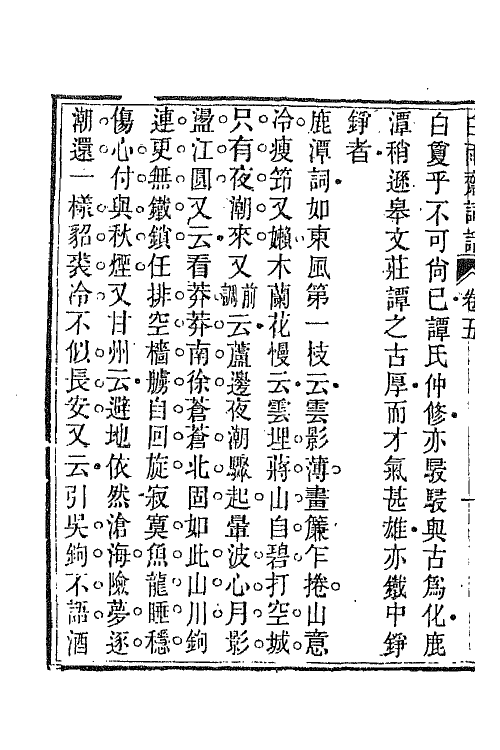 白雨齋詞話 卷五
白夐乎不可尙已譚氏仲修亦駸駸與古爲化鹿
潭稍遜皋文莊譚之古厚而才氣甚雄亦鐵中錚
錚者
鹿潭詞如東風第一枝云雲影薄畫簾乍捲山意
冷瘦筇又嬾木蘭花慢云雲埋蔣山自碧打空城
只有夜潮來又前調云蘆邊夜潮驟起暈波心月影
盪江圓又云看莽莽南徐蒼蒼北固如此山川鉤
連更無鐵鎖任排空檣艣自回旋寂寞魚龍睡穩
傷心付與秋煙又甘州云避地依然滄海險夢逐
潮還一樣貂裘冷不似長安又云引吳鉤不語酒